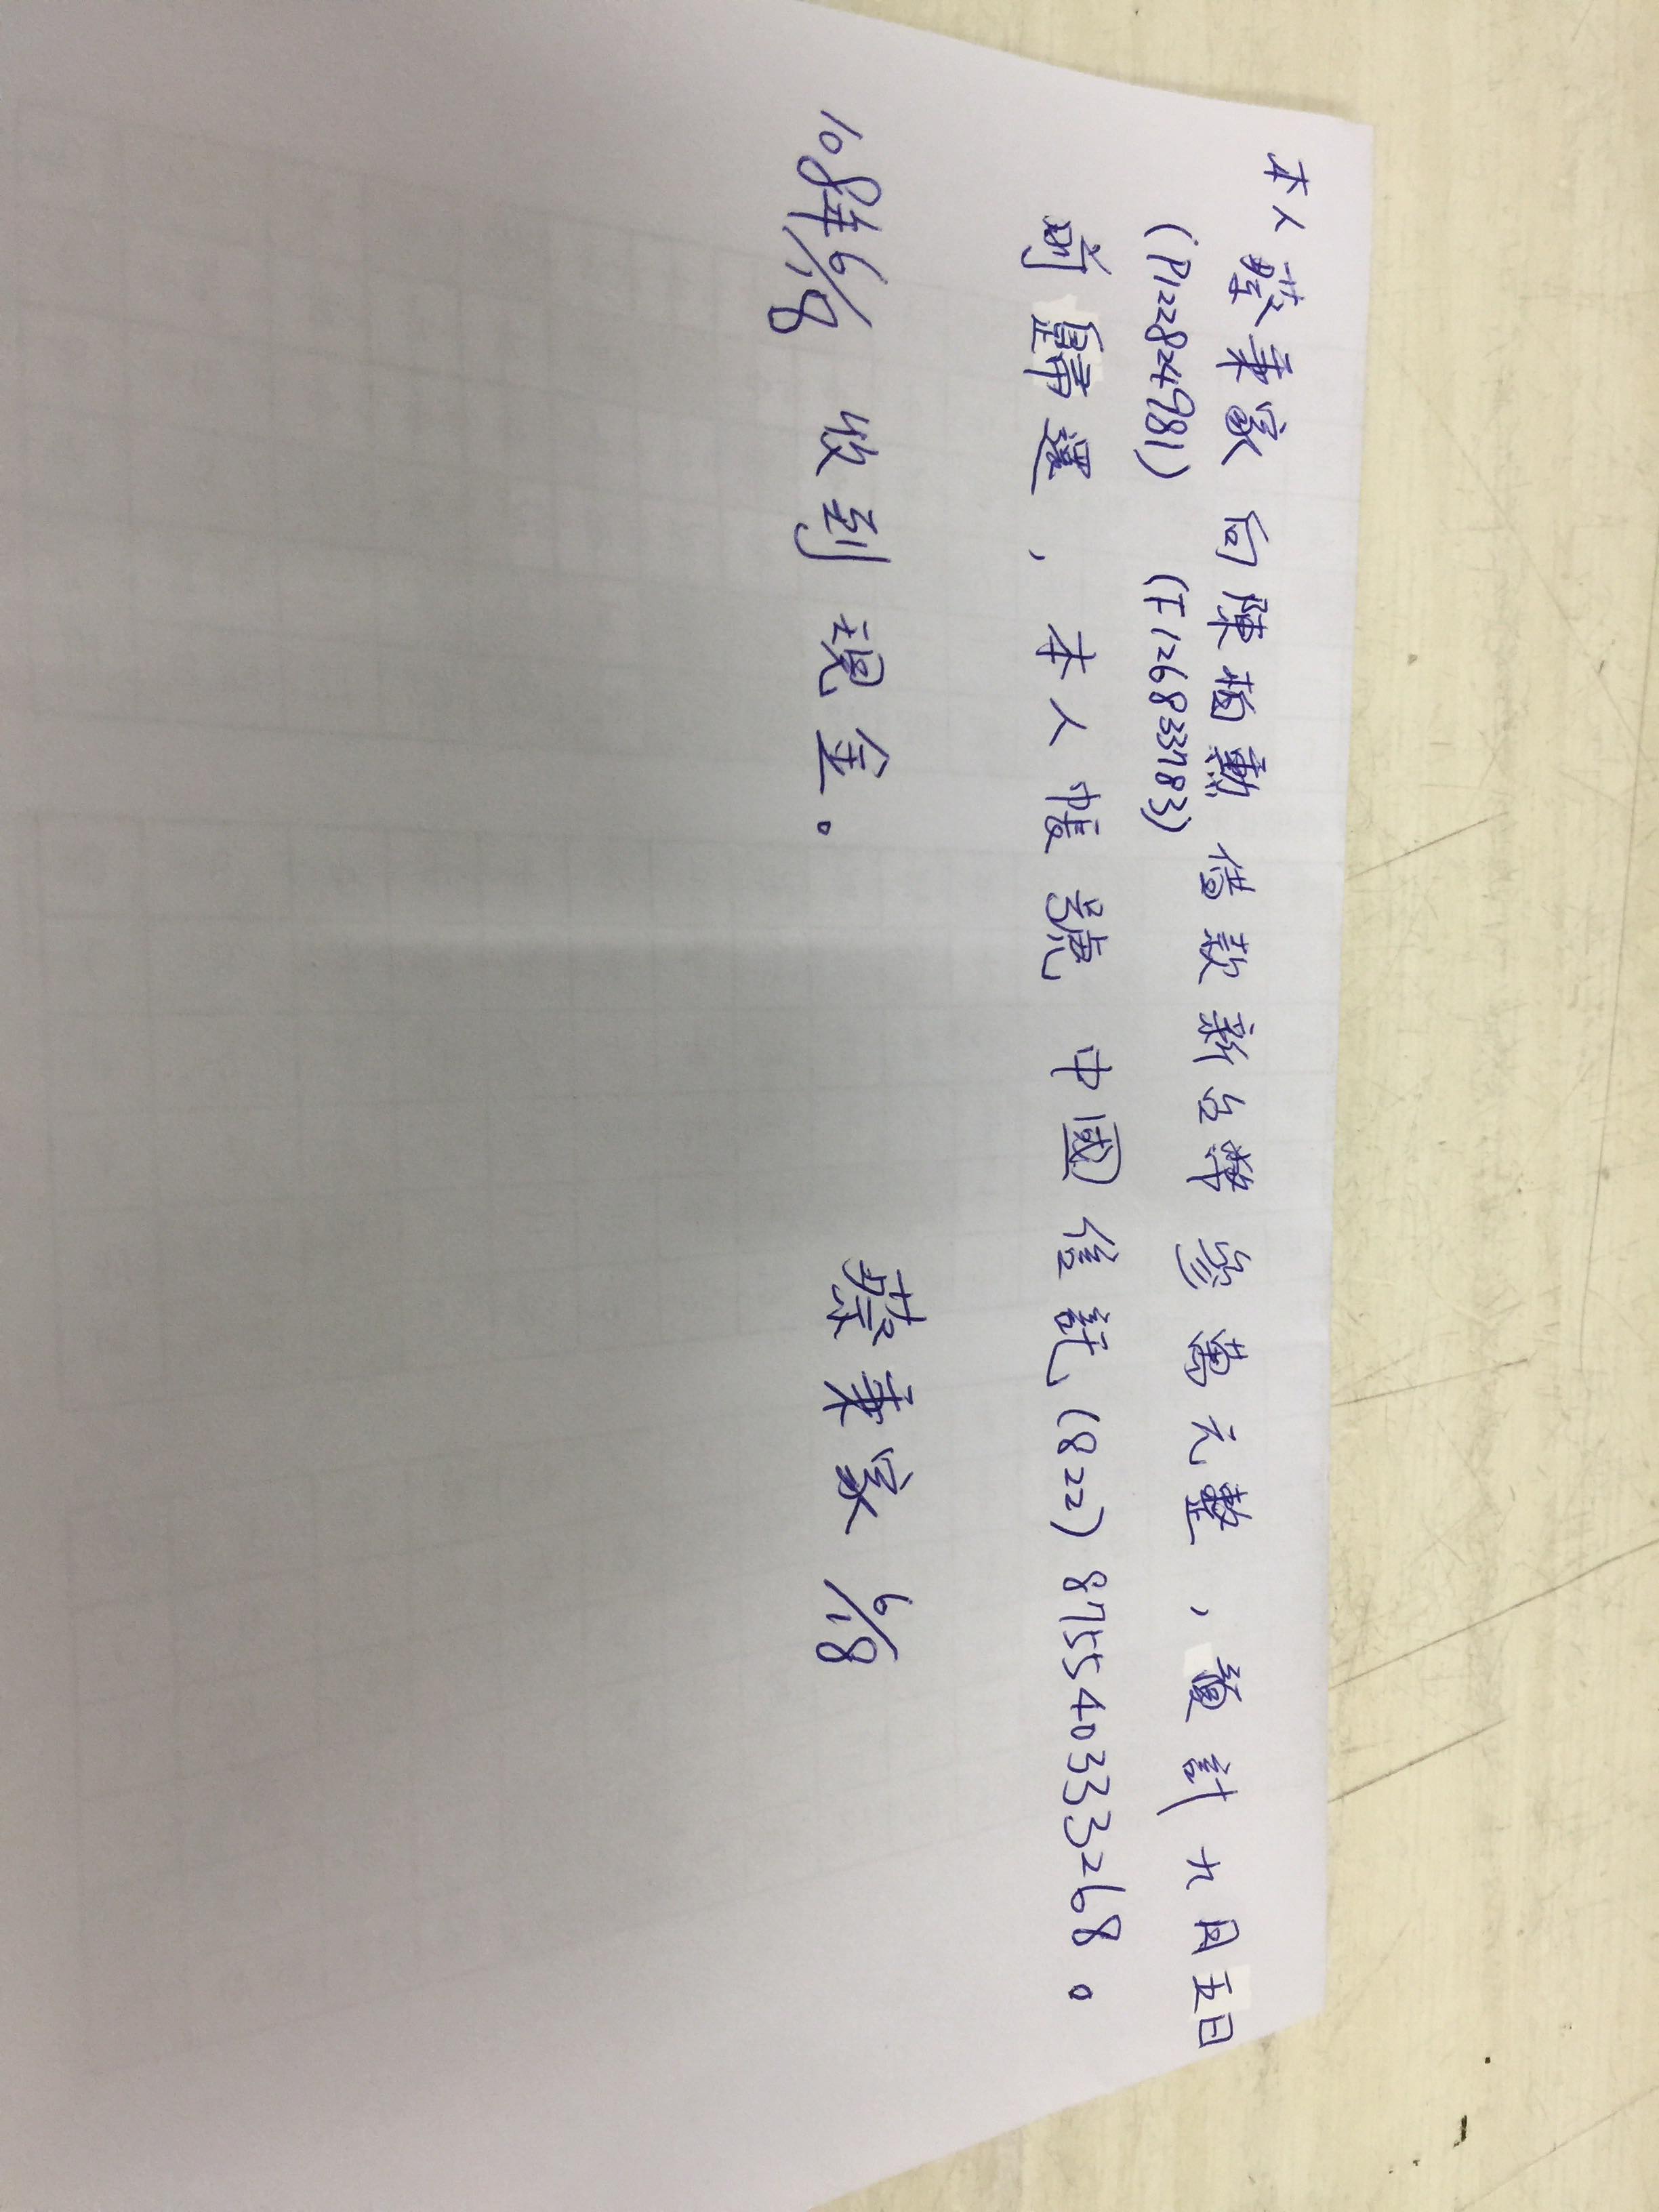 本人蔡秉家向陳柏勳借款新台幣參萬元整,預計九月五日
(P122824981) (F126833783)
前歸還,本人帳號 中國信託(822)875540333268。
108年6/18 收到現金。
蔡秉家 6/18